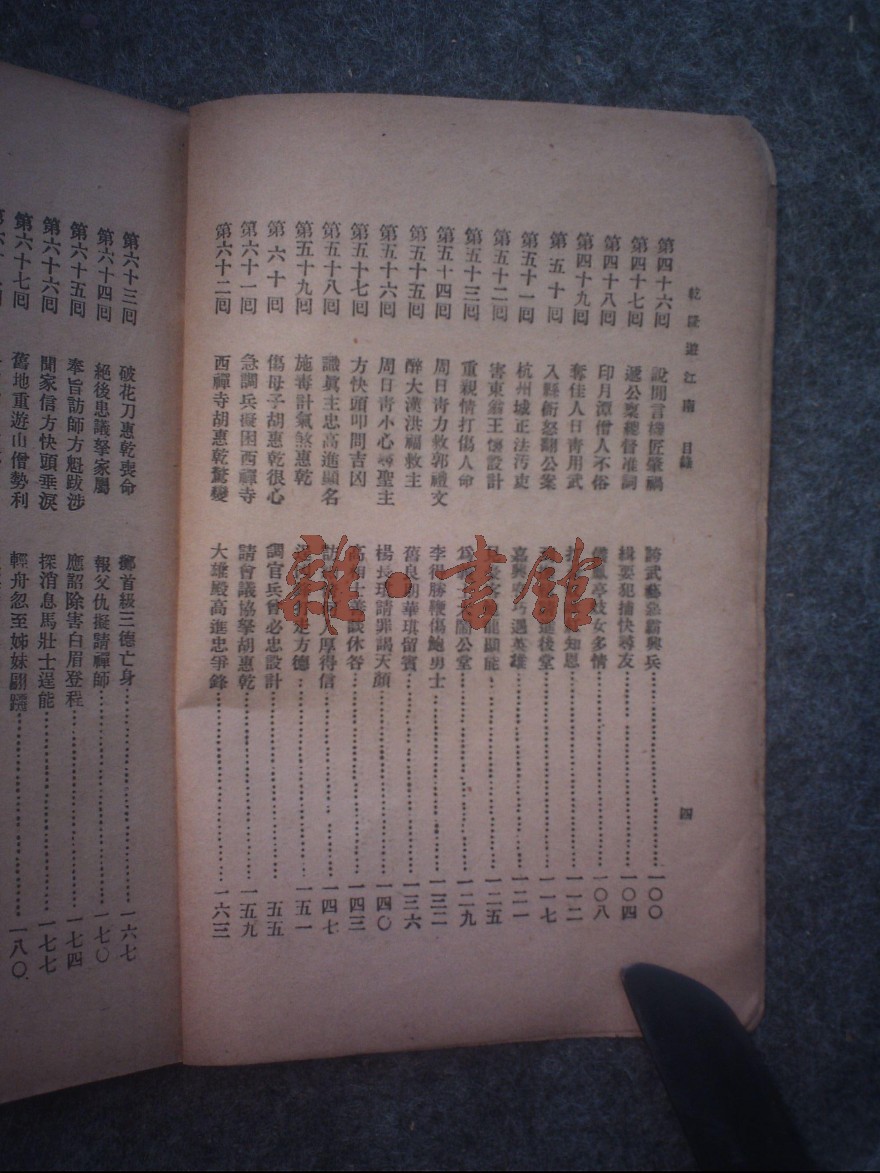 乾隆遊江南 目錄 四
第四十六回 說閒言機匠肇禍 誇武藝惡霸興兵 一〇〇
第四十七回 遞公稟總督准詞 緝要犯捕快尋友 一〇四
第四十八回 印月潭僧人不俗 鳳亭妓女多情 一〇八
第四十九回 奪佳人日青用武 知恩 一一二
第五十回 入縣衙怒翻公案 進後堂 一一七
第五十一回 杭州城正法污吏 嘉興 巧遇英雄 一二一
第五十二回 害東翁王 設計 客 能顯能 一二五
第五十三回 重親情打傷人命 為 鬧公堂 一二九
第五十四回 周日青力救郭禮文 李得勝鞭傷鮑勇士 一三二
第五十五回 醉大漢洪福救主 舊良朋華琪留賓 一三六
第五十六回 周日青小心尋聖主 楊長 請罪謁天顏 一四〇
第五十七回 方快頭叩問吉凶 高相士善談休咎 一四三
第五十八回 識眞主忠高進顯名 訪 人厚得信 一四七
第五十九回 施毒計氣煞惠乾 走方德 一五一
第六十回 傷母子胡惠乾很心 調官兵曾必忠設計 五五
第六十一回 急調兵擬困西禪寺 請會議協拏胡惠乾 一五九
第六十二回 西禪寺胡惠乾驚變 大雄殿高進忠爭鋒 一六三
第六十三回 破花刀惠乾喪命 首級三德亡身 一六七
第六十四回 絕後患議拏家屬 報父仇擬請禪師 一七〇
第六十五回 奉旨訪師方魁跋涉 應詔除害白眉登程 一七四
第六十六回 聞家信方快頭垂淚 探消息馬壯士逞能 一七七
第六十七回 舊地重遊山僧勢利 輕舟忽至姊妹翩躚 一八〇
雜·書館